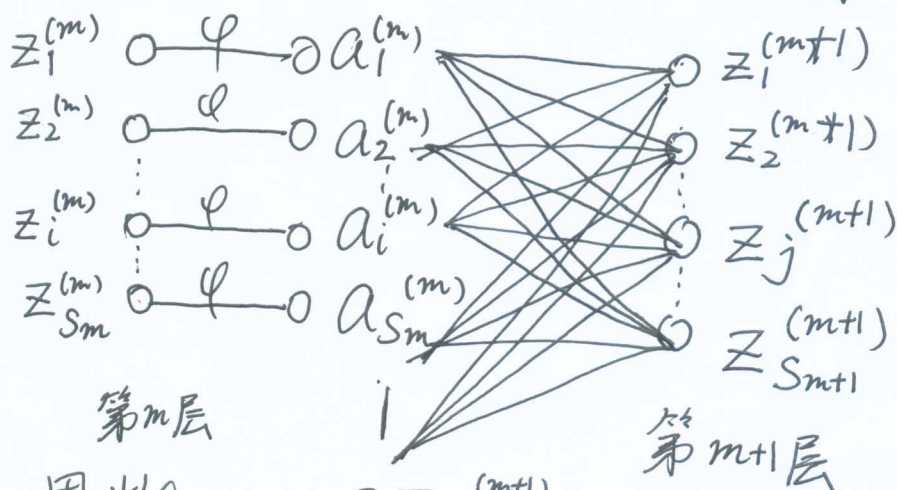 z_1^{(m)} φ a_1^{(m)} z_1^{(m+1)}
z_2^{(m)} φ a_2^{(m)} z_2^{(m+1)}
z_i^{(m)} φ a_i^{(m)} z_j^{(m+1)}
z_{S_m}^{(m)} φ a_{S_m}^{(m)} z_{S_{m+1}}^{(m+1)}
第m层 1 第m+1层
(m+1)